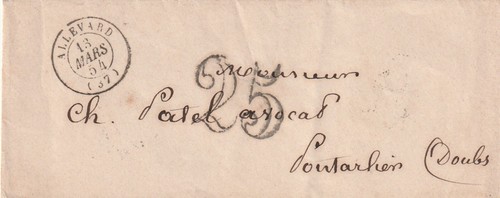 ALLEVARD
13
MARS
54
(37)
25
Monsieur
Ch. Patel avocat
Pontarlier (Doubs